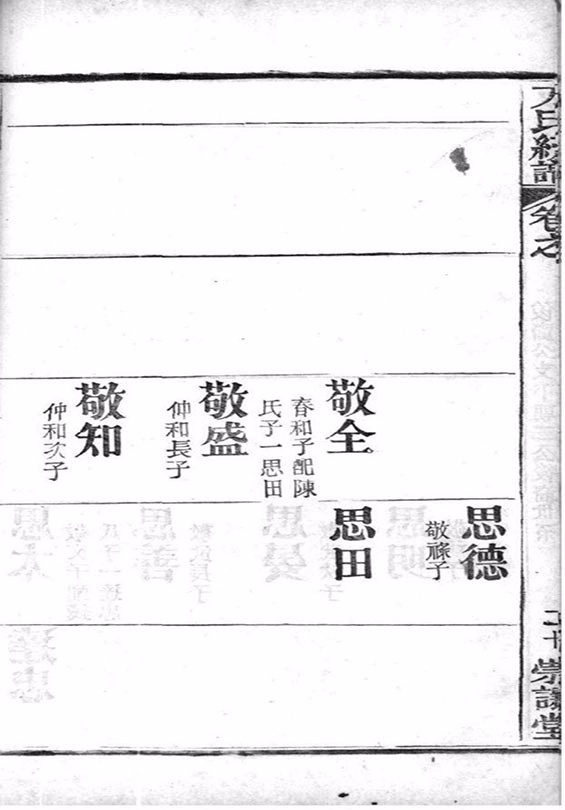 卷之
思德
敬祿子
敬全
春和子配陳
氏子一思田
思田
敬盛
仲和長子
敬知
仲和次子